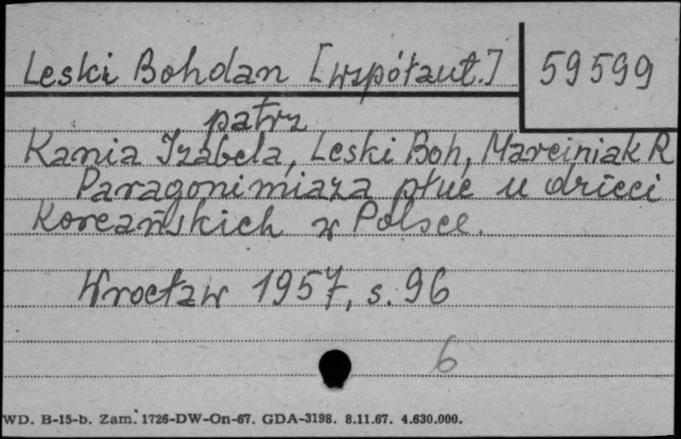 Leski Bohdan [współaut.] 59599
patrz
Kania Izabela, Leski Boh, Marciniak R
Paragonimiaza płuc u dzieci
Koreańskich w Polsce.
Wrocław 1957, s. 96
6
WD. B-15-b. Zam. 1726-DW-On-67. GDA-3198. 8.11.67. 4.630.000.